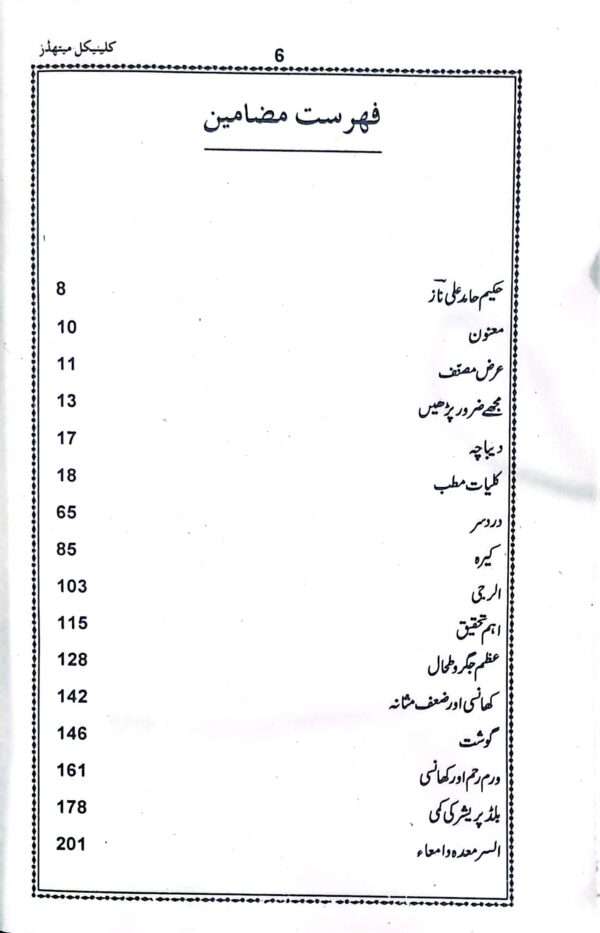 کلینیکل میتھڈز
6
فہرست مضامین
حکیم حامد علی ناز 8
معنون 10
عرض مصنّف 11
مجھے ضرور پڑھیں 13
دیباچہ 17
کلیات مطب 18
درد سر 65
کیرہ 85
الرجی 103
اہم تحقیق 115
عظم جگر و طحال 128
کھانسی اور ضعف مثانہ 142
گوشت 146
ورم رحم اور کھانسی 161
بلڈ پریشر کی کمی 178
السر معدہ و امعاء 201